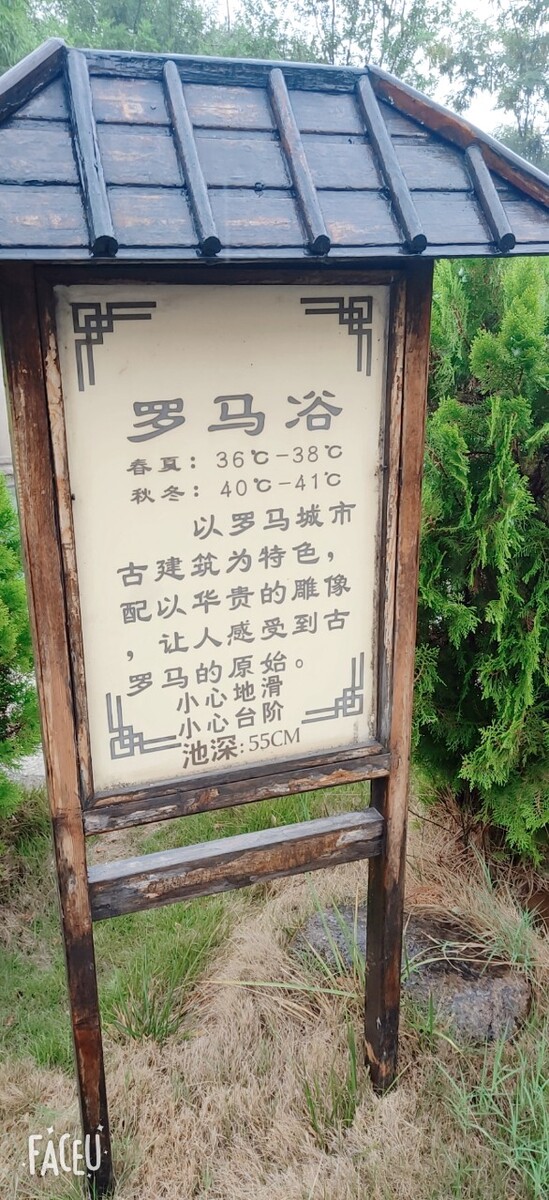 罗马浴
春夏：36℃-38℃
秋冬：40℃-41℃
以罗马城市
古建筑为特色，
配以华贵的雕像
，让人感受到古
罗马的原始。
小心地滑
小心台阶
池深:55CM
FACEU